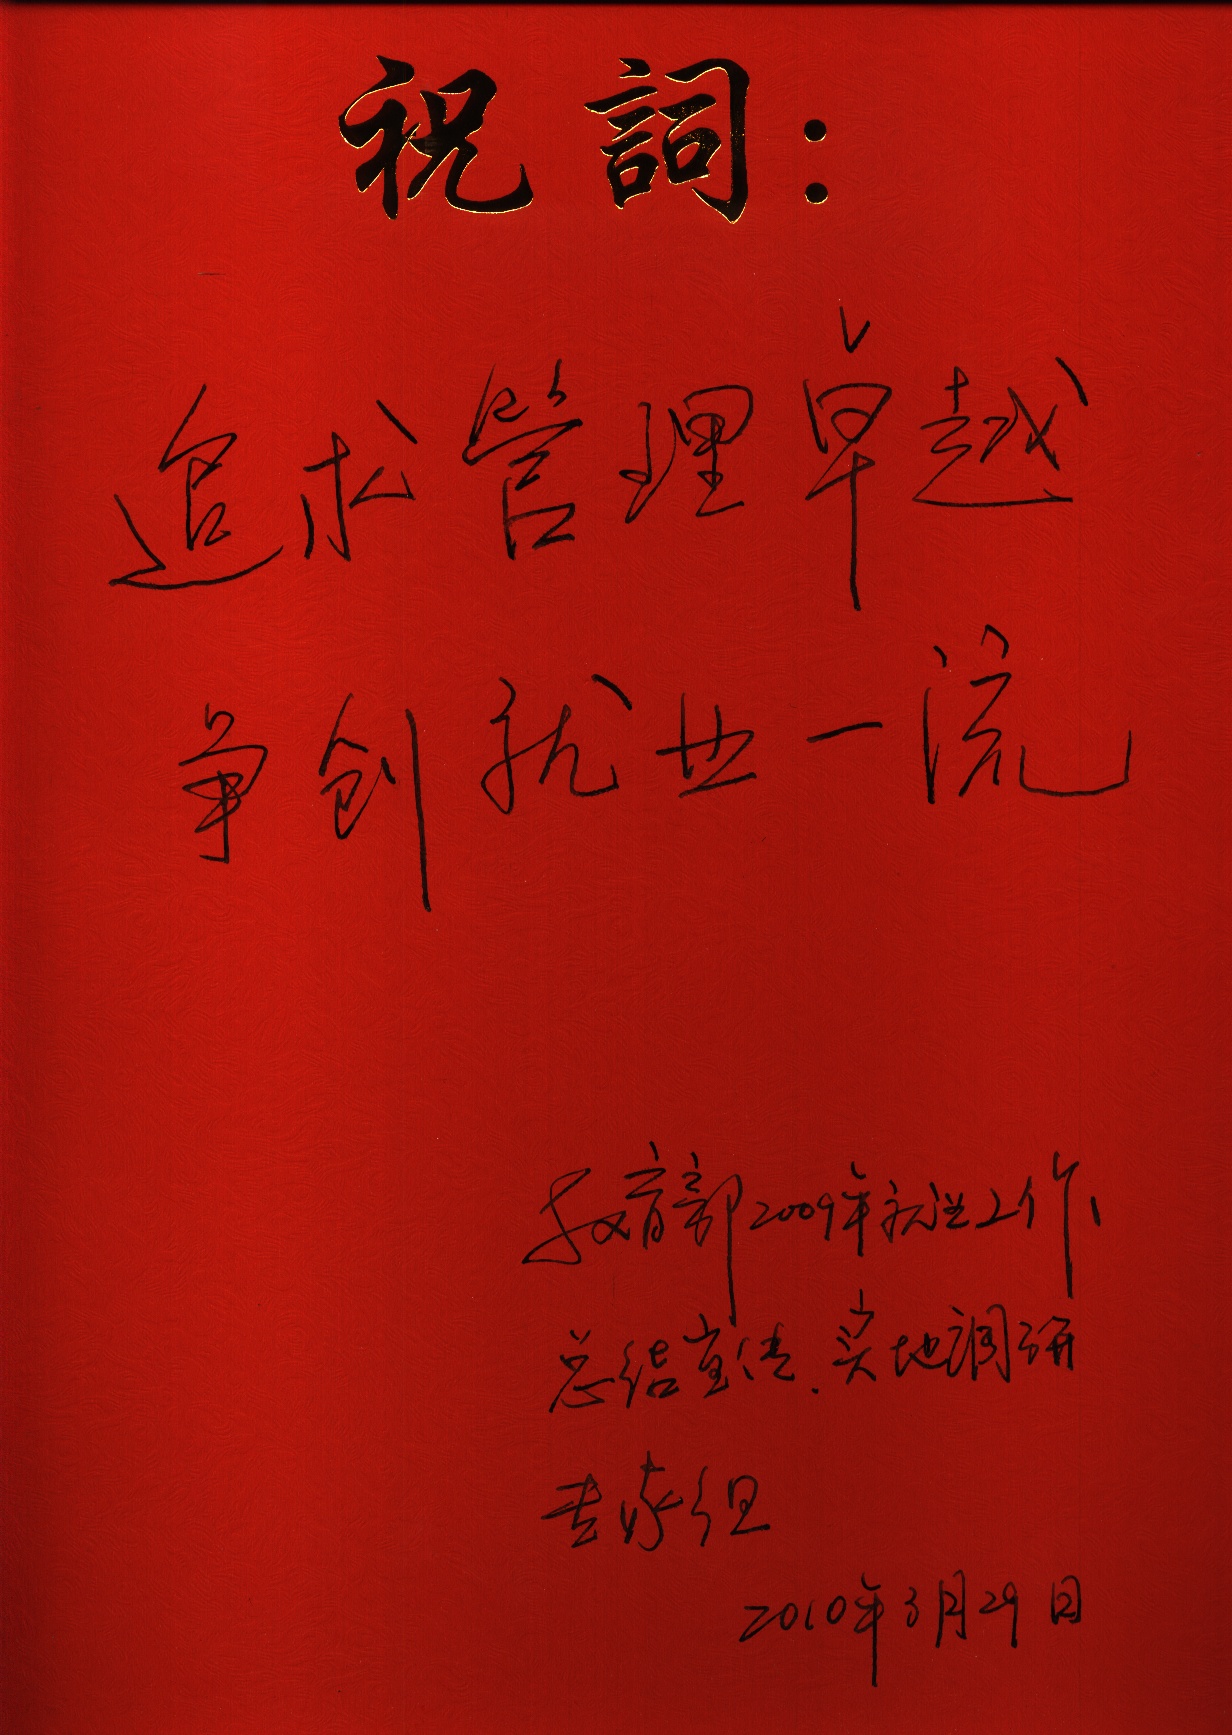 祝詞：
追求管理卓越
争创就业一流
教育部2009年就业工作
总结宣传、实地调研
专家组
2010年3月29日